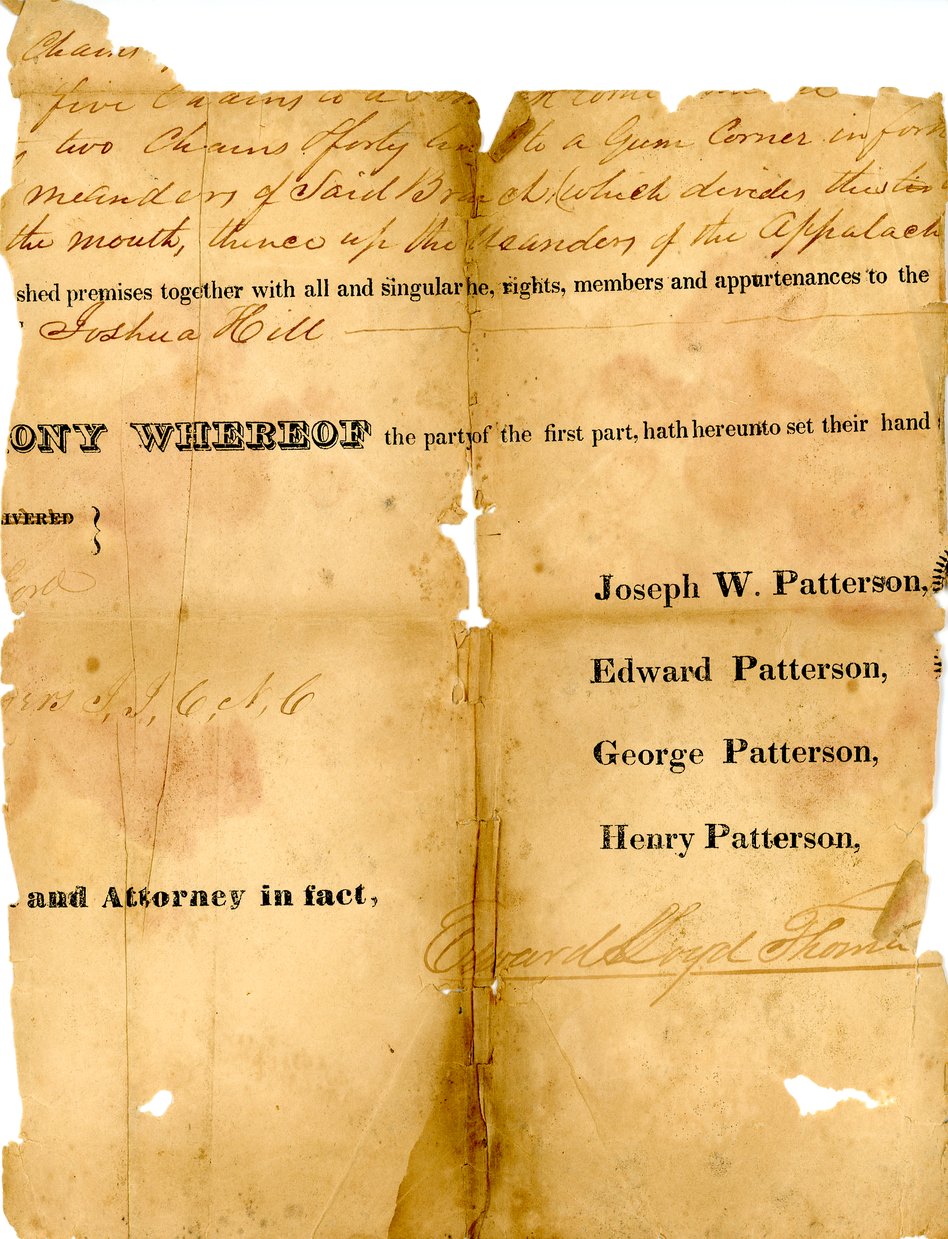 Chains
five Chains to a
two Chains & forty to a Gum Corner in
meanders of Said Branch (which divides this
the mouth, thence up the Meanders of the Appalach
shed premises together with all and singular he, rights, members and appurtenances to the
Joshua Hill
ONY WHEREOF the party of the first part, hath hereunto set their hand
IVERED }
Joseph W. Patterson,
Edward Patterson,
J, J, C, N, C
George Patterson,
Henry Patterson,
and Attorney in fact,
Edward Lloyd Thomas